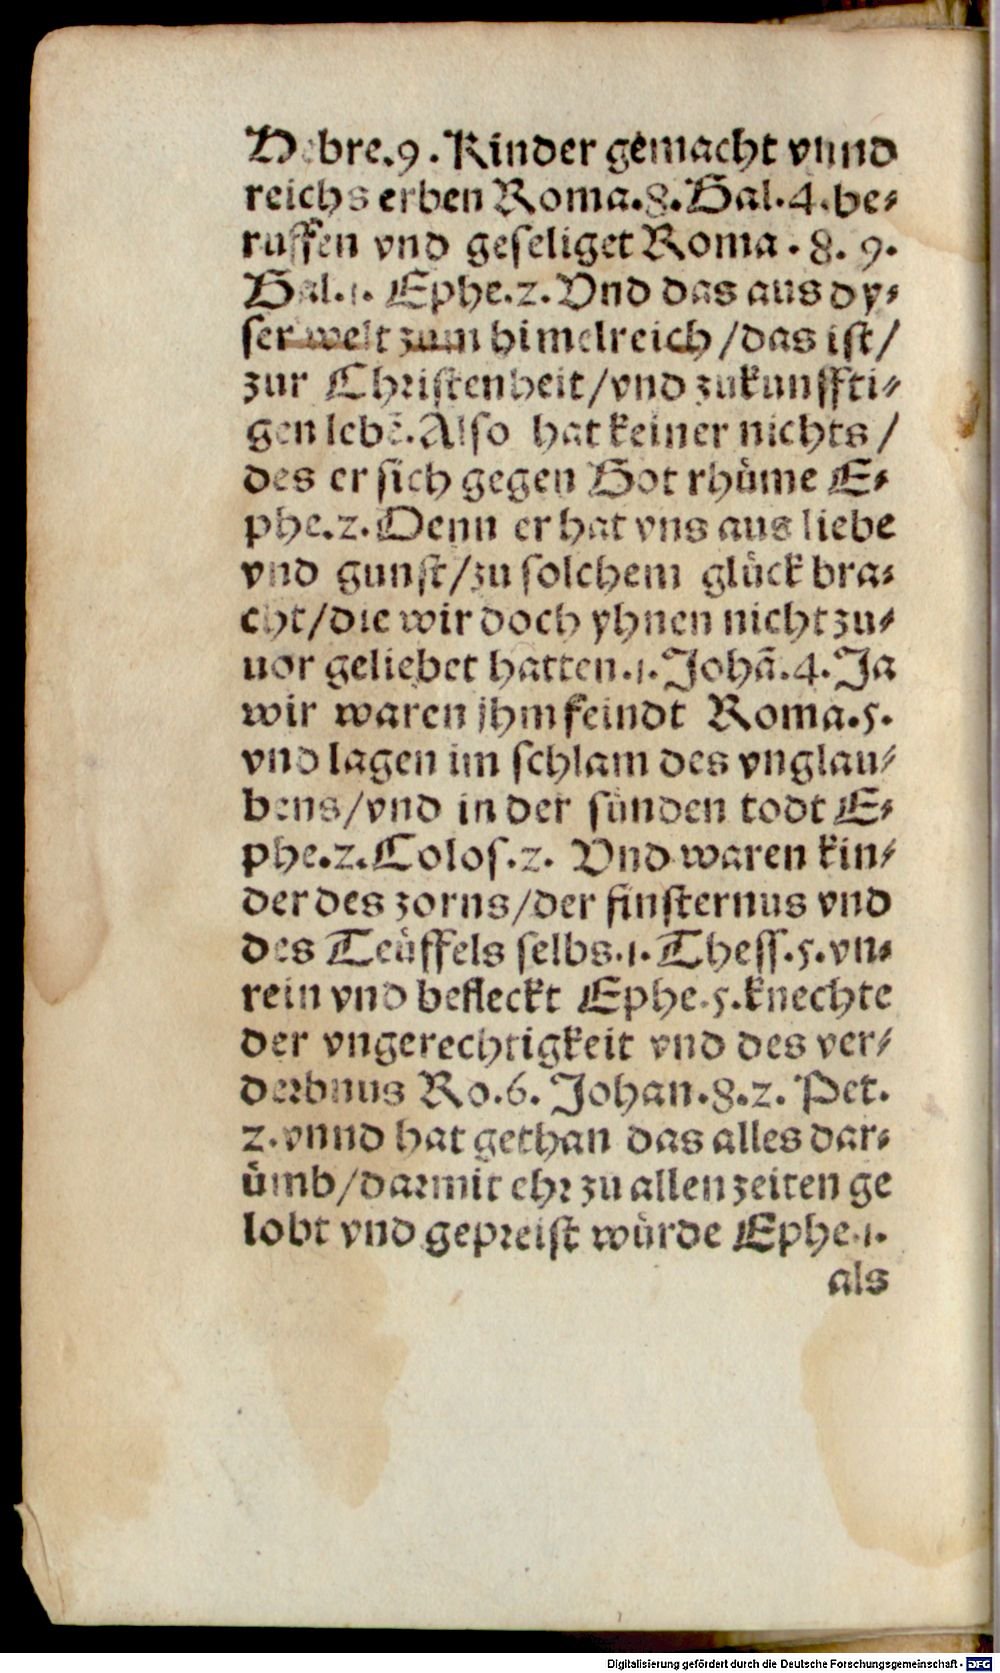 Hebre.9. Kinder gemacht vnnd
reichs erben Roma.8. Gal.4. be⸗
ruffen vnd geseliget Roma. 8. 9.
Gal.1. Ephe.2. Vnd das aus dy⸗
ser welt zum himelreich/das ist/
zur Christenheit/vnd zukunffti⸗
gen lebẽ. Also hat keiner nichts/
des er sich gegen Got rhüme E⸗
phe.2. Denn er hat vns aus liebe
vnd gunst/zu solchem glück bra⸗
cht/die wir doch yhnen nicht zu⸗
uor geliebet hatten.1. Johã.4. Ja
wir waren jhm feindt Roma.5.
vnd lagen im schlam des vnglau⸗
bens/vnd in der sünden todt E⸗
phe.2. Colos.2. Vnd waren kin⸗
der des zorns/der finsternus vnd
des Teüffels selbs.1. Thess.5. vn⸗
rein vnd befleckt Ephe.5. knechte
der vngerechtigkeit vnd des ver⸗
derbnus Ro.6. Johan.8.2. Pet.
2. vnnd hat gethan das alles dar⸗
ümb/darmit ehr zu allen zeiten ge
lobt vnd gepreist würde Ephe.1.
als
Digitalisierung gefördert durch die Deutsche Forschungsgemeinschaft - DFG